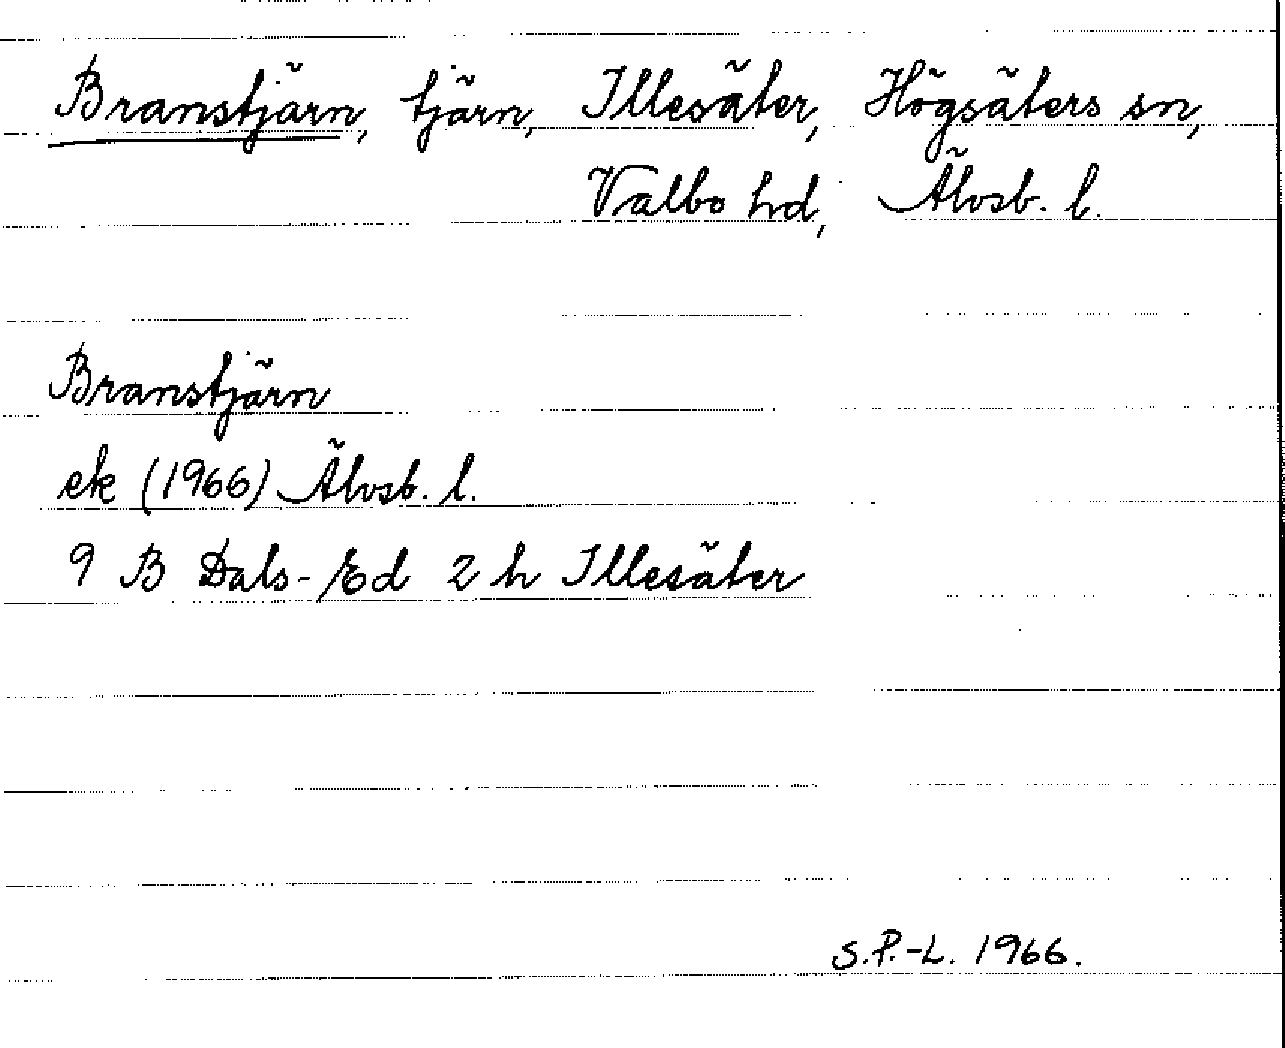 Branstjärn, tjärn, Illesäter, Högsäters sn,
Valbo hd, Älvsb. l.
Branstjärn
ek (1966) Älvsb. l.
9 B Dals-Ed 2 h Illesäter
S.P.-L. 1966.